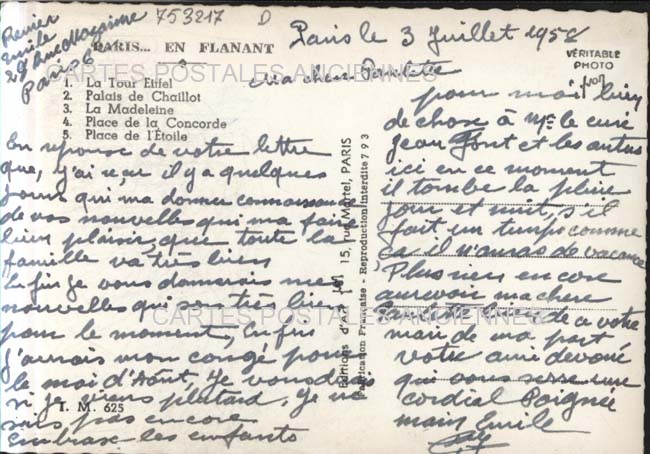 Renier
Emile
29 Rue Mazarine
Paris 6
753217 D
PARIS... EN FLANANT
1. La Tour Eiffel
2. Palais de Chaillot
3. La Madeleine
4. Place de la Concorde
5. Place de l'Étoile
CARTES POSTALES ANCIENNES
Paris le 3 Juillet 1958
VÉRITABLE
PHOTO
ma chère Paulette
En réponse de votre lettre
que, j'ai reçu il y a quelques
jours qui m'a donner connaissance
de vos nouvelles qui m'a fait
bien plaisir, que toute la
famille va très bien
Enfin je vous donnerais mes
nouvelles qui sont très bien
pour le moment, Enfin
j'aurais mon congé pour
le mois d'Août, je vous
si je viens plutard, je ne
sais pas encore
embrasse les enfants
I. M. 625
Editions d'Art 15, rue Martel, PARIS
Fabrication Française - Reproduction interdite 793
pour moi bien
de chose à Mr le curé
Jean Font et les autres
ici en ce moment
il tombe la pluie
jour et nuit, s'il
fait un temps comme
ça il n'auras de vacance
Plus rien encore
aurevoir ma chère
Paulette à votre
mari de ma part
votre ami dévoué
qui vous serre une
cordial Poignée
main Emile
CARTES POSTALES ANCIENNES